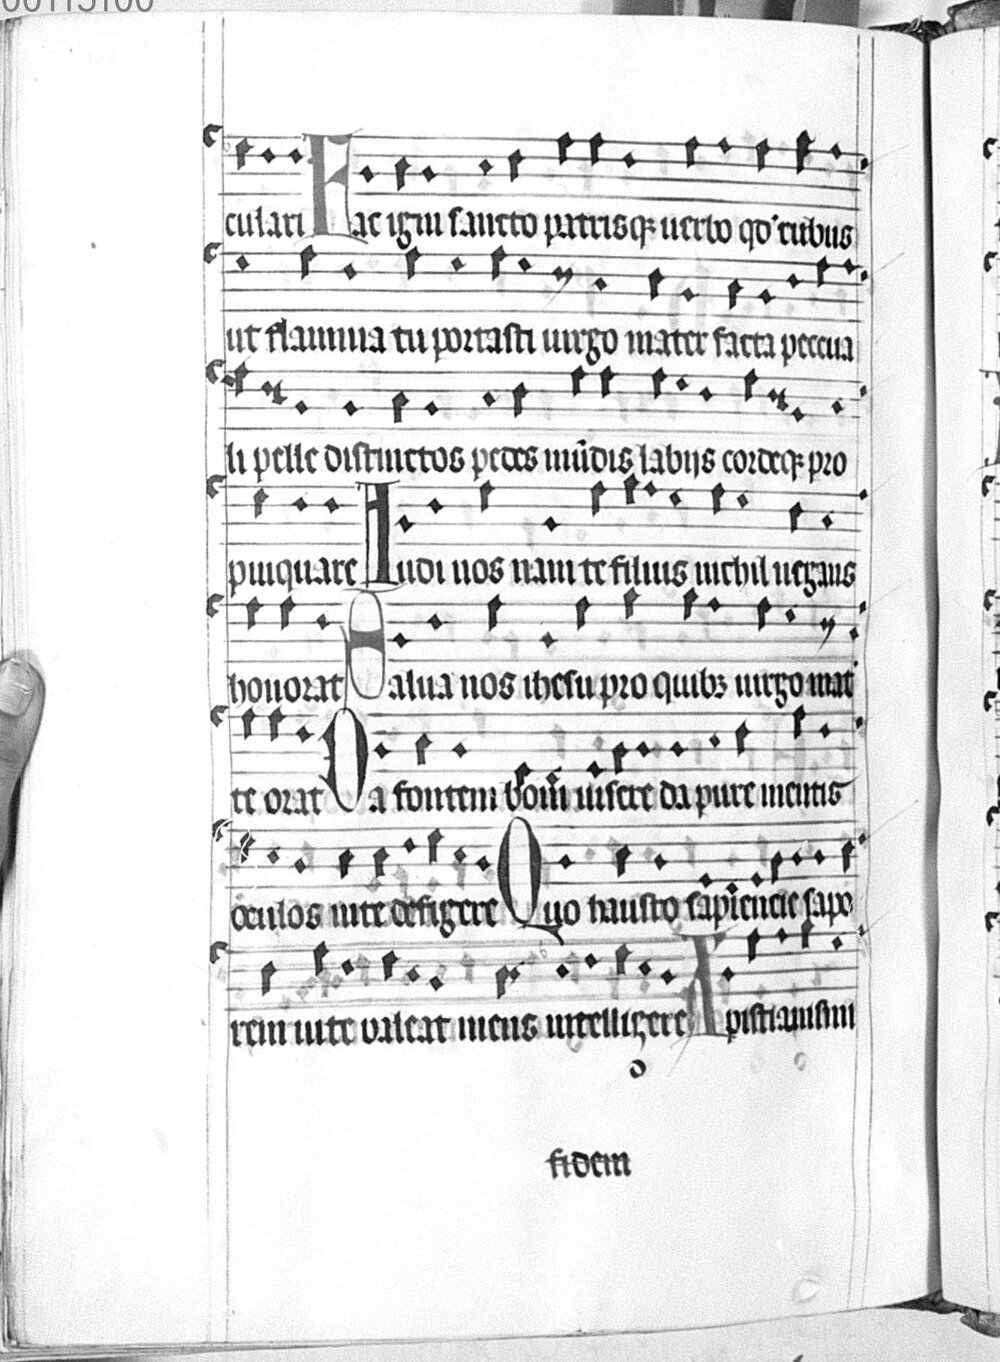 culari Fac igni sancto patrisq; uerbo qd' rubus
ut flamma tu portasti uirgo mater facta pecua
li pelle discinctos pedes mūdis labijs cordeq; pro
pinquare Audi nos nam te filius nichil negans
honorat Salua nos ihesu pro quibz uirgo mat
te orat Da fontem boni uisere da pure mentis
oculos in te defigere Quo hausto sapiencie sapo
rem in te ualeat mens intelligere Xpistianismi
fidem